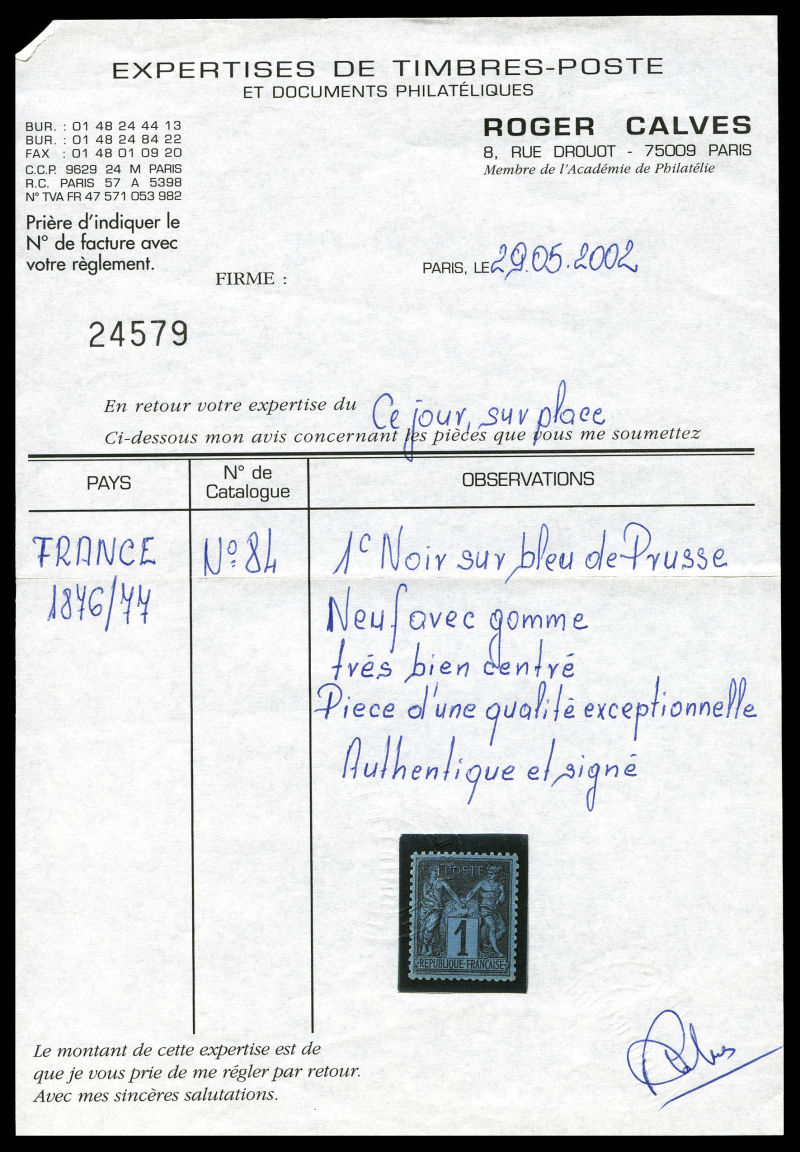 EXPERTISES DE TIMBRES-POSTE
ET DOCUMENTS PHILATÉLIQUES
BUR. : 01 48 24 44 13
BUR. : 01 48 24 84 22
FAX : 01 48 01 09 20
C.C.P. 9629 24 M PARIS
R.C. PARIS 57 A 5398
N° TVA FR 47 571 053 982
ROGER CALVES
8, RUE DROUOT - 75009 PARIS
Membre de l'Académie de Philatélie
Prière d'indiquer le
N° de facture avec
votre règlement.
FIRME :
PARIS, LE 29.05.2002
24579
En retour votre expertise du Ce jour, sur place
Ci-dessous mon avis concernant les pièces que vous me soumettez
PAYS
N° de
Catalogue
OBSERVATIONS
FRANCE
1876/77
N° 84
1c Noir sur bleu de Prusse
Neuf avec gomme
trés bien centré
Piece d'une qualité exceptionnelle
Authentique et signé
POSTE
1
REPUBLIQUE-FRANÇAISE
Le montant de cette expertise est de
que je vous prie de me régler par retour.
Avec mes sincères salutations.
Calves